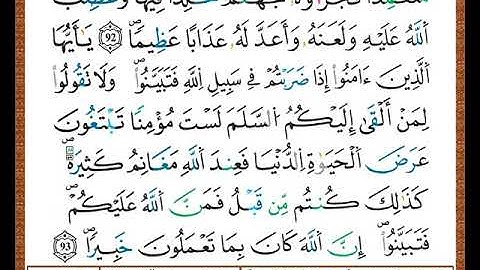 مُّتَعَمِّدًا فَجَزَآؤُهُۥ جَهَنَّمُ خَٰلِدًا فِيهَا وَغَضِبَ
اَ۬للَّهُ عَلَيْهِ وَلَعَنَهُۥ وَأَعَدَّ لَهُۥ عَذَابًا عَظِيمًا ۖ 92 يَٰٓأَيُّهَا
اَ۬لَّذِينَ ءَامَنُوٓاْ إِذَا ضَرَبْتُمْ فِي سَبِيلِ اِ۬للَّهِ فَتَبَيَّنُواْ ۖ وَلَا تَقُولُواْ
لِمَنْ أَلْقَىٰٓ إِلَيْكُمُ اُ۬لسَّلَمَ لَسْتَ مُؤْمِنًا تَبْتَغُونَ
عَرَضَ اَ۬لْحَيَوٰةِ اِ۬لدُّنْيَا فَعِندَ اَ۬للَّهِ مَغَانِمُ كَثِيرَةٌ ۖ
كَذَٰلِكَ كُنتُم مِّن قَبْلُ فَمَنَّ اَ۬للَّهُ عَلَيْكُمْ ۖ
فَتَبَيَّنُوٓاْ ۖ إِنَّ اَ۬للَّهَ كَانَ بِمَا تَعْمَلُونَ خَبِيرًا ۖ 93